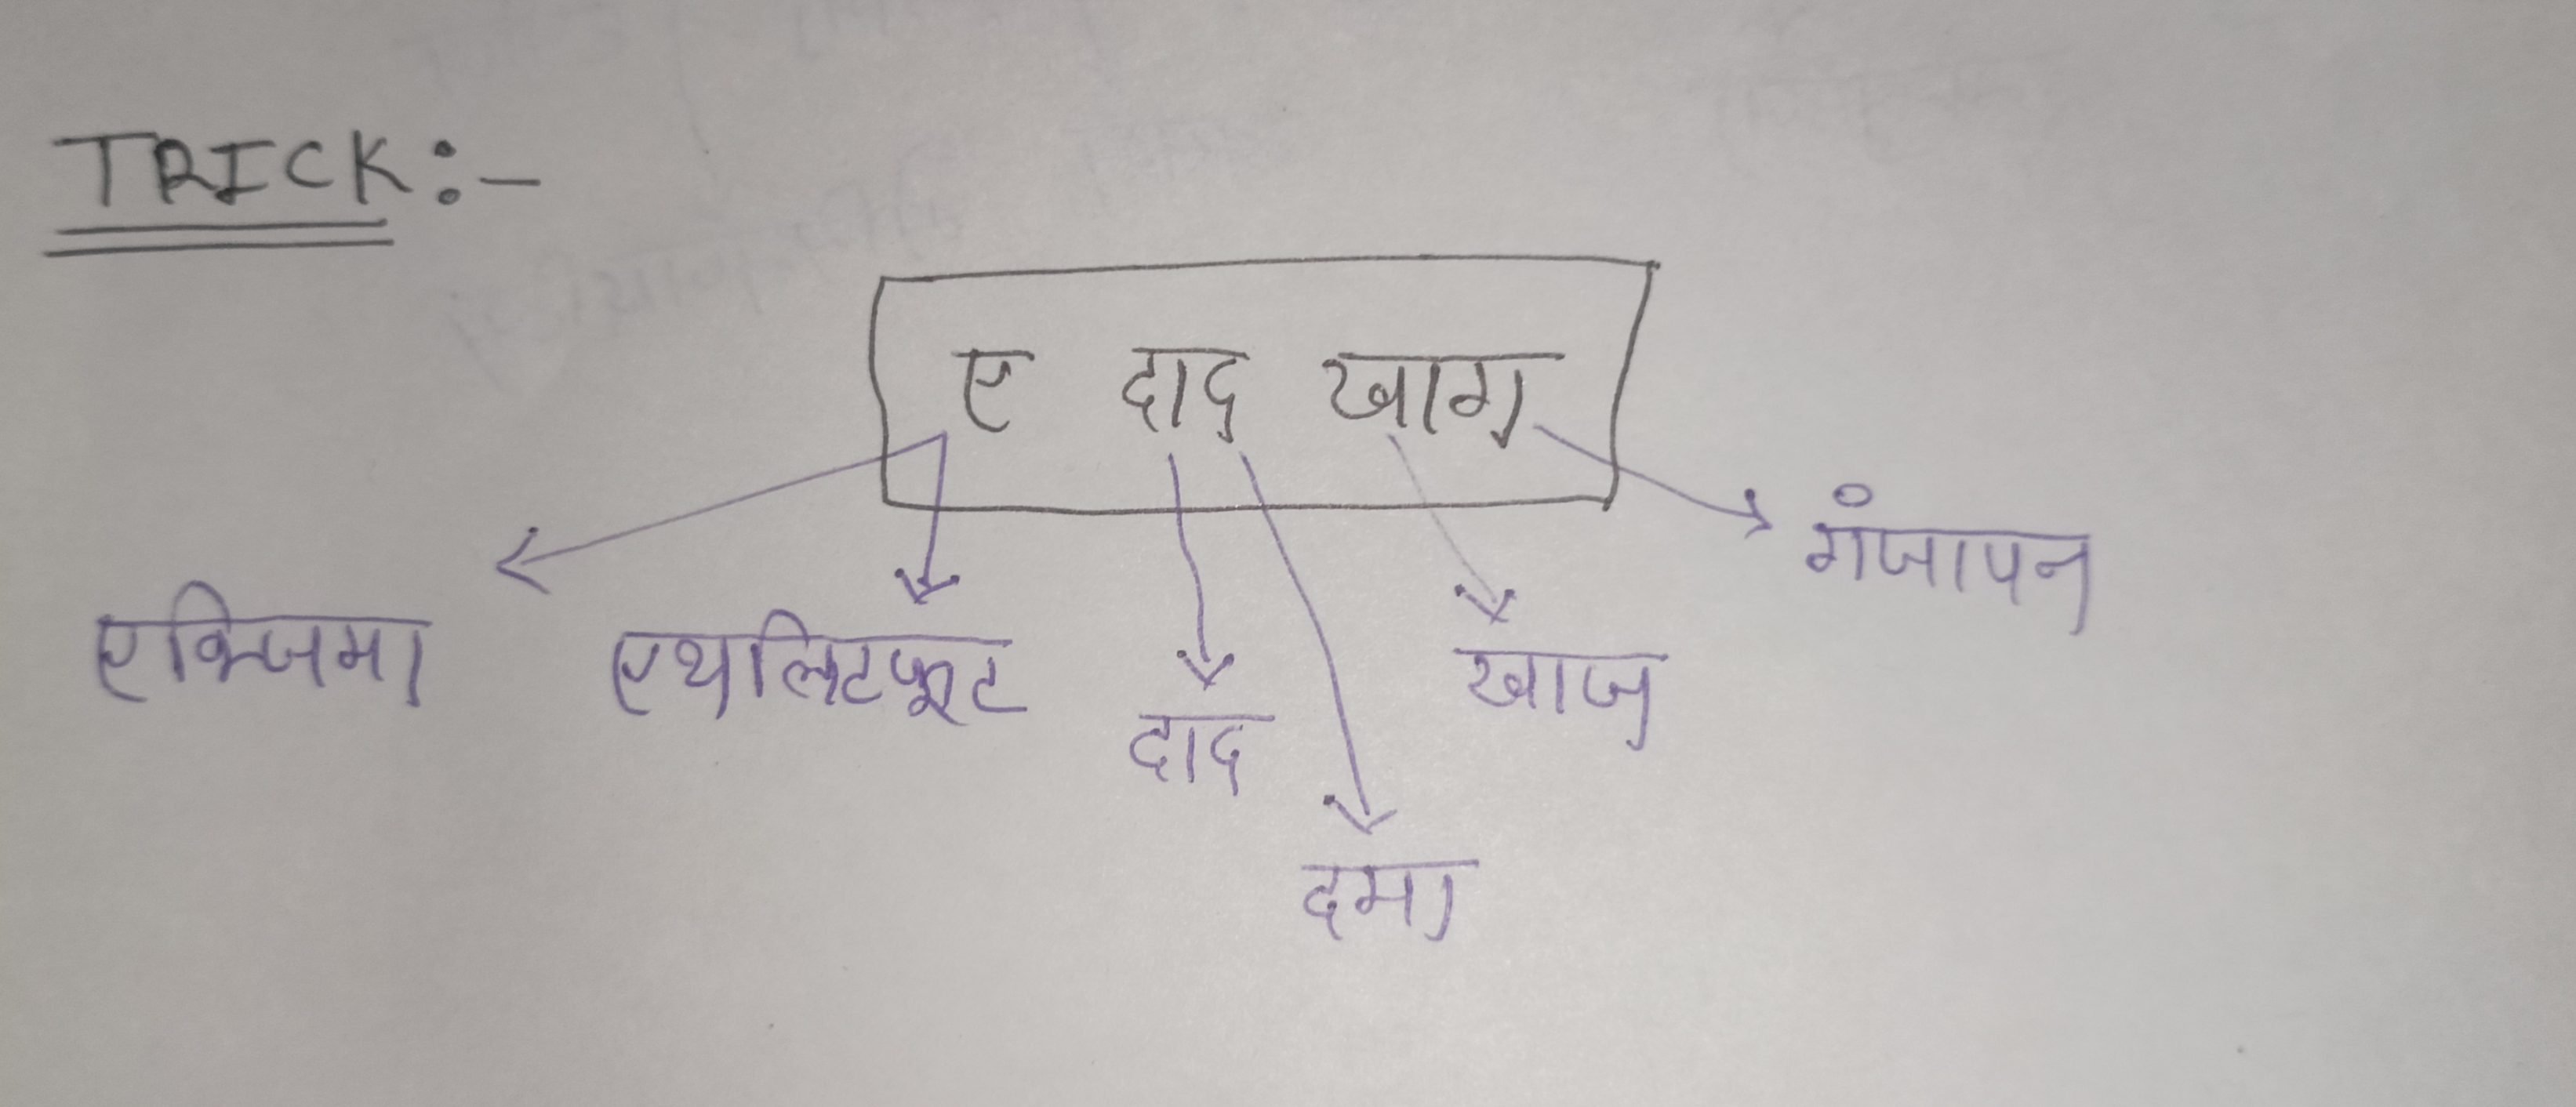 TRICK:-
ए दाद खाग
गंजापन
एक्जिमा एथलिटफूट खाज
दाद
दमा